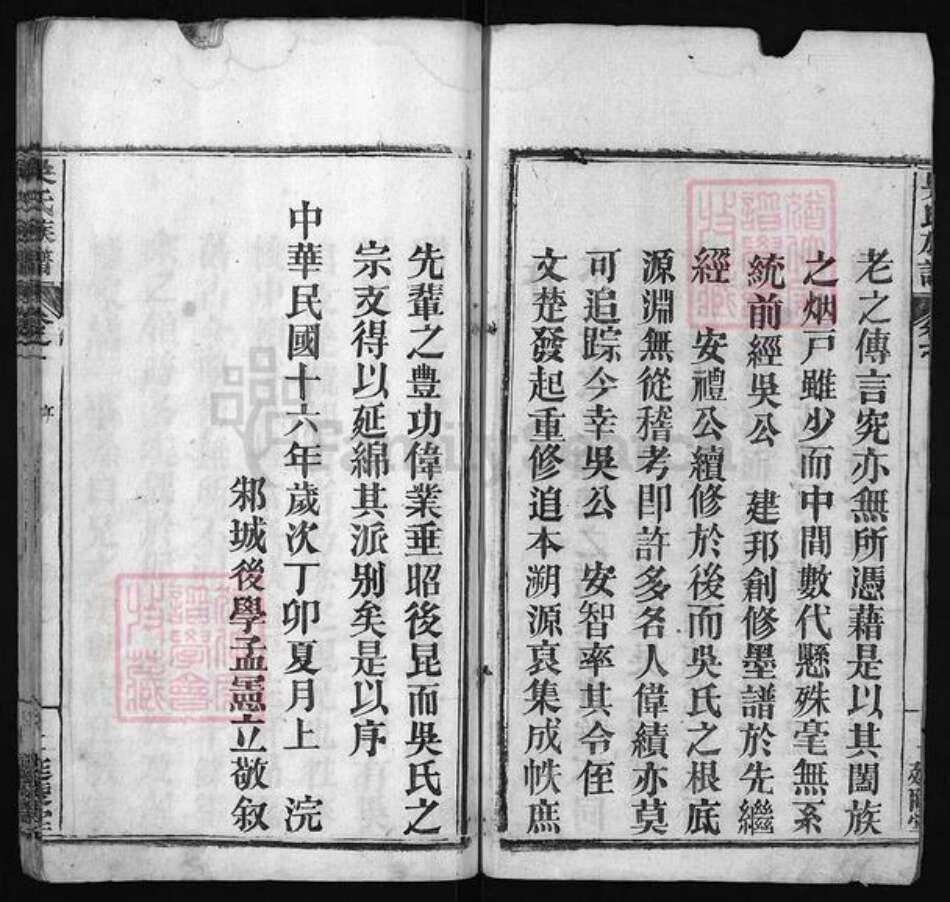 老之傳言究亦無所憑藉是以其闔族
之烟戸雖少而中間數代懸殊毫無系
統前經吳公 建邦創修墨譜於先繼
經 安禮公續修於後而吳氏之根底
源淵無從稽考即許多名人偉績亦莫
可追踪今幸吳公 安智率其令侄
文楚發起重修追本溯源裒集成帙庶
先輩之豊功偉業垂昭後昆而吳氏之
宗支得以延綿其派别矣是以序
中華民國十六年歲次丁卯夏月上 浣
邾城後學孟憲立敬叙
吳氏族譜 卷首 序 二 延陵堂
FamilySearch